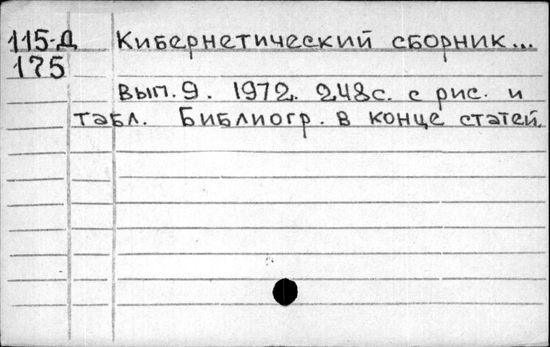 115-Д Кибернетический сборник...
175
вып. 9. 1972. 248с. с рис. и
табл. Библиогр. в конце статей.